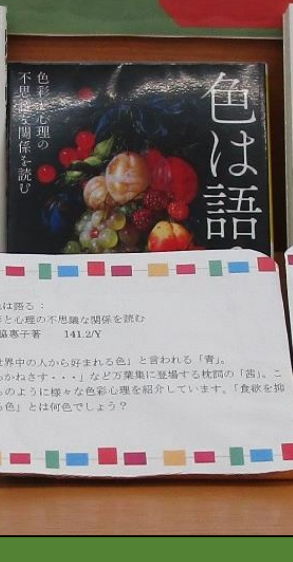 色は語
色彩と心理の
不思議な関係を読む
は語る：
と心理の不思議な関係を読む
脇惠子著 141.2/Y
世界中の人から好まれる色」と言われる「青」。
かねさす・・・」など万葉集に登場する枕詞の「茜」。こ
のように様々な色彩心理を紹介しています。「食欲を抑
る色」とは何色でしょう？